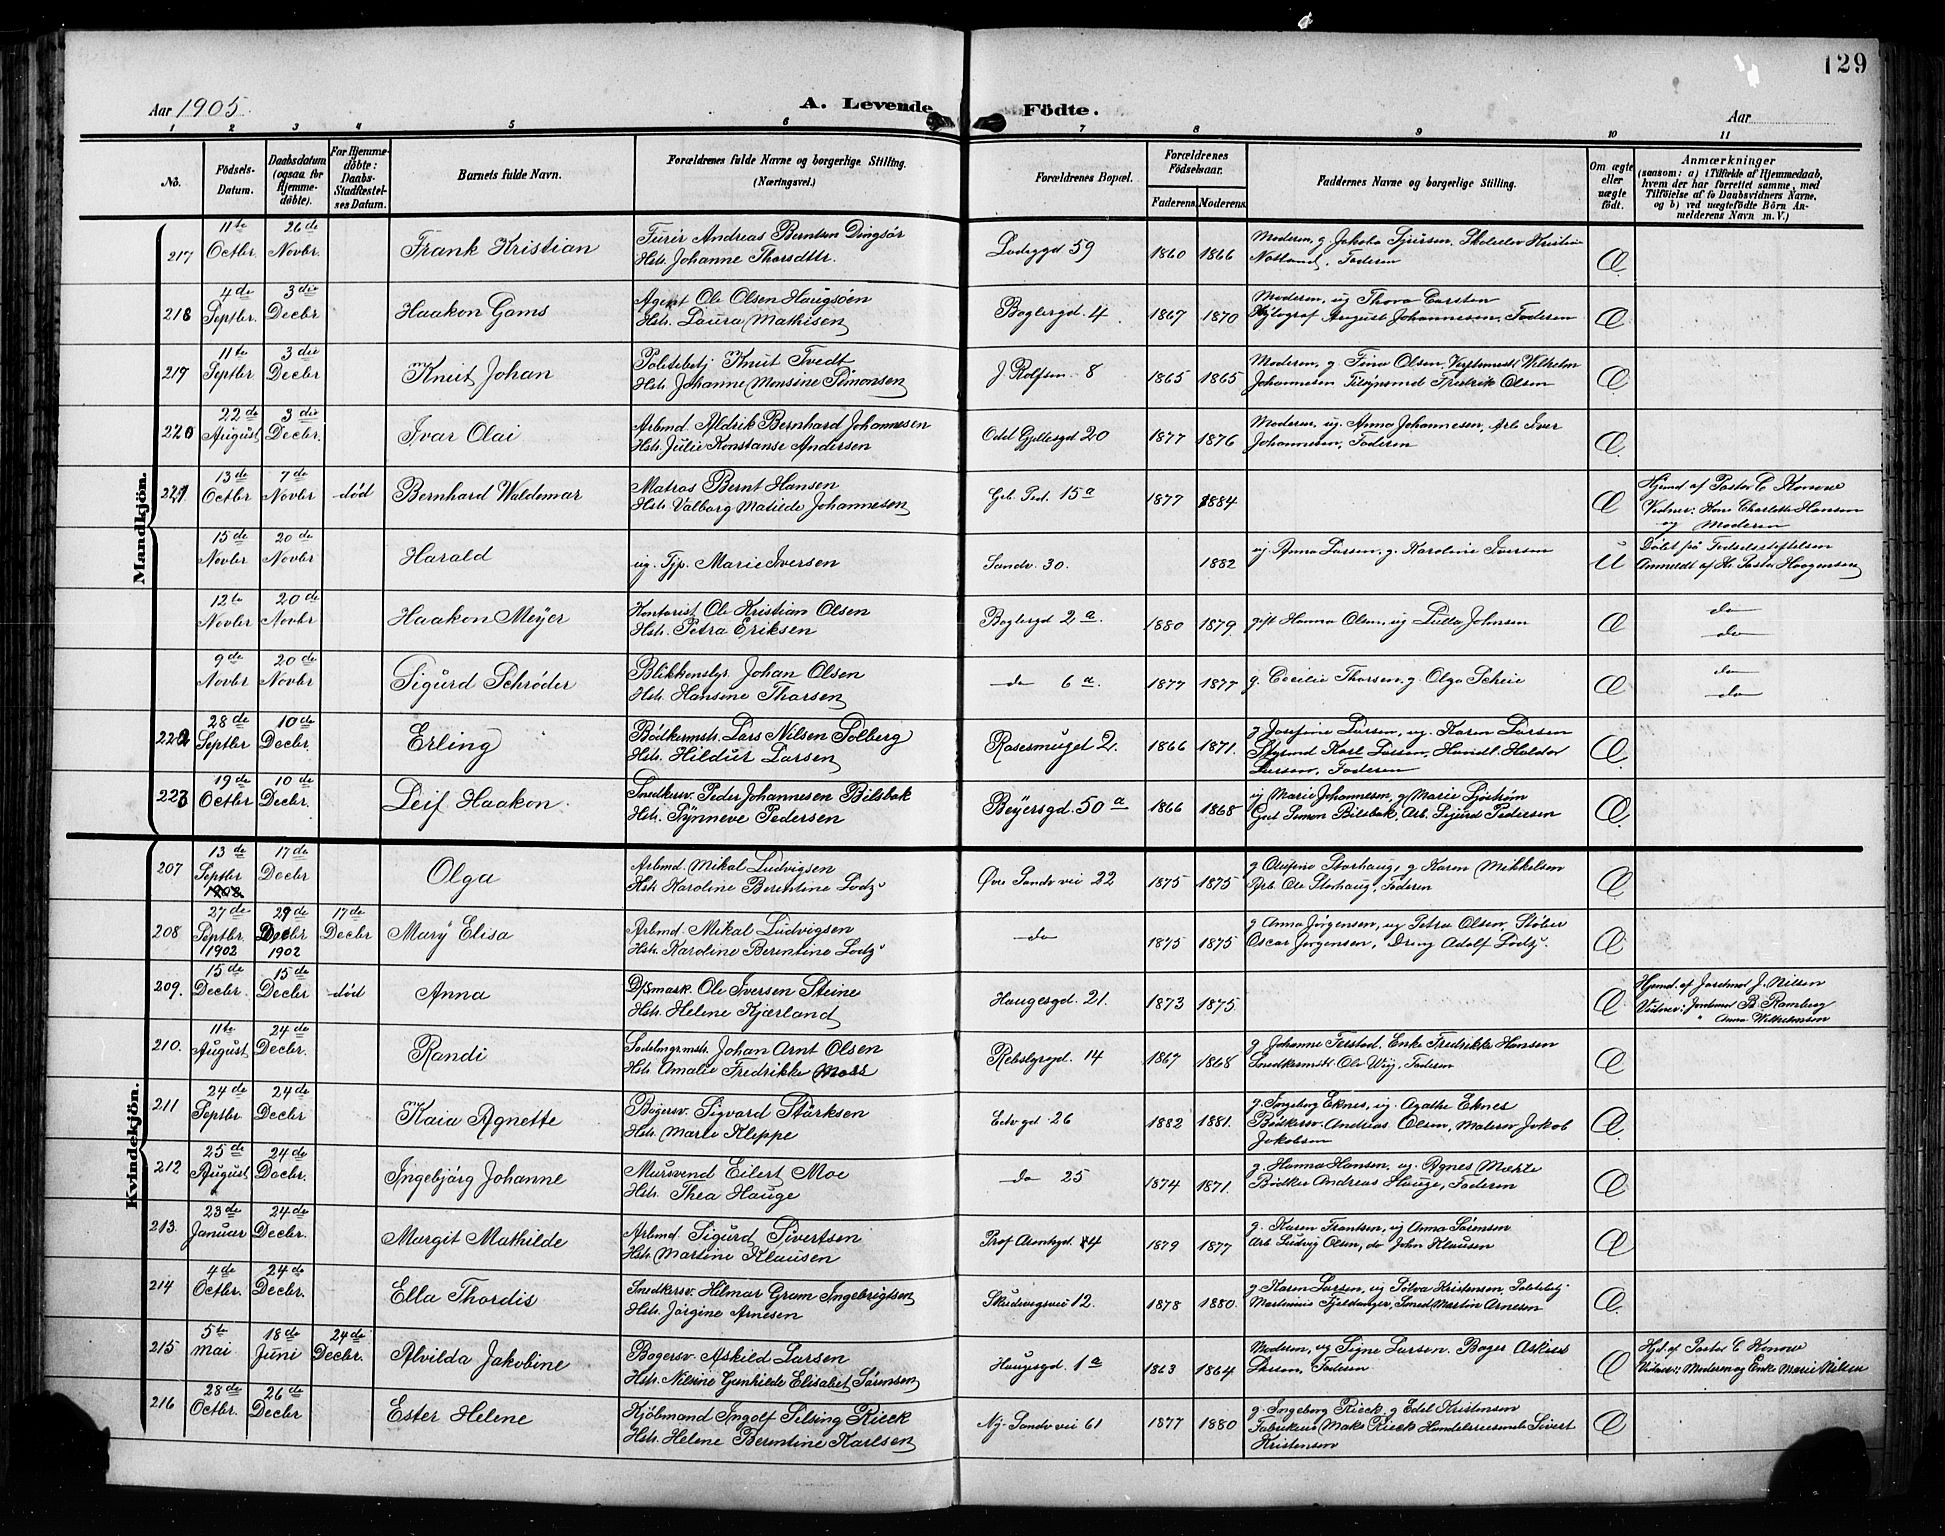 129
Aar 1905.
A. Levende Födte.
Aar
1 2 3 4 5 6 7 8 9 10 11
No.
Födsels-Datum.
Daabsdatum (ogsaa for Hjemme-döbte).
For Hjemme-döbte: Daabs-Stadfæstel-ses Datum.
Barnets fulde Navn.
Forældrenes fulde Navne og borgerlige Stilling. (Næringsvei.)
Forældrenes Bopæl.
Forældrenes Födselsaar.
Faderens. Moderens.
Faddernes Navne og borgerlige Stilling.
Om ægte eller uægte födt.
Anmærkninger
(saasom: a) i Tilfælde af Hjemmedaab,
hvem der har forrettet samme, med
Tilföielse af to Daabsvidners Navne,
og b) ved uægtefödte Börn An-
melderens Navn m. V.)
Mandkjön.
217 11te Octbr 26de Novbr. Frank Kristian
Turir Andreas Berntsen Dingsör
Hstr. Johanne Thorsdttr.
Ladeggd 59 1860 1866
Moderen, g. Jakoba Sjursen, Kristian
Notland, Faderen Æ
218 4de Septbr. 3die Decbr. Haakon Gams
Agent Ole Olsen Haugsöen
Hstr. Laura Mathisen
Baglergd. 4 1867 1870
Moderen, ug Thora Carsten
Xylograf August Johannesen, Faderen Æ
217 11te Septbr 3die Decbr Knut Johan
Politibetj Knut Tvedt
Hstr. Johanne Monsine Simonsen
J. Rolfsen 8 1865 1865
Moderen, g. Tina Olsen, Wilhelm
Johannesen Fredrik Olsen Æ
220 22de August 3die Decbr. Ivar Olai
Arbmd. Aldrik Bernhard Johannesen
Hstr. Julie Konstanse Andersen
Odd Gjellesgd 20 1877 1876
Moderen, ug. Anna Johannesen, Arb Iver
Johannesen, Faderen Æ
221 13de Octbr 7de Novbr død Bernhard Waldemar
Matros Bernt Hansen
Hstr. Valborg Matilde Johannesen
15a 1877 1884 Æ
Hjemd af Pastor C Konow
Vidner: Charlotte Hansen
og Moderen
15de Novbr 20de Novbr Harald
ug. Tjp. Marie Iversen
Sandv. 30. 1882
ug. Anna Larsen, g. Karoline Iversen U
Döbt fra Fødselsstiftelsen
Anmeldt af Hr. Pastor Haagensen
12te Novbr 20de Novbr Haakon Meyer
Kontorist Ole Kristian Olsen
Hstr. Petra Eriksen
Baglergd 2a 1880 1879
gift Hanna Olsen, ug Lulla Johnsen Æ
do
do
9de Novbr 20de Novbr Sigurd Schrøder
Blikkenslgr. Johan Olsen
Hstr. Hansine Thorsen
do 6a 1877 1877
g. Cecilie Thorsen, g. Olga Scheie Æ
do
do
222 28de Septbr 10de Decbr. Erling
Bödkermstr. Lars Nilsen Solberg
Hstr. Hildur Larsen
Rosesmuget 2. 1866 1871.
g Josefine Larsen, ug. Karen Larsen
Karl Larsen, Handl. Haldor
Larsen, Faderen Æ
223 19de Octbr 10de Decbr. Leif Haakon.
Snedkersv. Peder Johannesen Bilsbak
Hstr. Synneve Pedersen
Beyersgd. 50a 1866 1868
ug Marie Johannesen, g Marie Sjöström
Simon Bilsbak, Arb. Sigurd Pedersen Æ
Kvindekjön.
207 13de Septbr 1902 17de Decbr Olga
Arbmd. Mikal Ludvigsen
Hstr Karoline Berentine Lodz
Øvre Sandv vei 22 1875 1875
g Olufine Storhaug, g Karen Mikkelsen
Arb. Ole Storhaug, Faderen Æ
208 27de Septbr. 1902 29de Decbr 1902 17de Decbr Mary Elisa
Arbmd. Mikal Ludvigsen
Hstr. Karoline Berentine Lodz
do 1875 1875
g Anna Jörgensen, ug Petra Olsen, Stöber
Oscar Jörgensen, Dreng Adolf Lodz Æ
209. 15de Decbr. 15de Decbr død Anna
Ole Iversen Steine
Hstr. Helene Kjærland
Haugesgd. 21. 1873 1875. Æ
Hjemd. af Jordmd J. Nilsen
Vidner: Jordmod B. Ramberg
" Anna Wilhelmsen
210. 11te August 24de Decbr. Randi
Sadelmgrmstr. Johan Arnt Olsen
Hstr. Amalie Fredrikke Moss
Rebslgrgd. 14 1867 1868
g. Johanne Ferstad, Enke Fredrikke Hansen
Snedkermstr. Ole Wiig, Faderen Æ
211 24de Septbr. 24de Decbr. Kaia Agnette
Bøgersv. Sigvard Størksen
Hstr. Marie Kleppe
Edv gd 26 1882 1881.
g. Ingeborg Eknes, ug. Agathe Eknes
Bödkersv. Andreas Olsen, Malersv Jakob
Jakobsen Æ
212 25de August 24de Decbr. Ingebjörg Johanne
Mursvend Eilert Moe
Hstr. Thea Hauge
do 25 1874 1871.
g. Hanna Hansen, ug. Agnes Mæhle
Bödker Andreas Hauge, Faderen Æ
213. 23de Januar 24de Decbr. Margit Mathilde
Arbmd Sigurd Sivertsen
Hstr. Martine Klausen
Prof Arentzgd. 4 1879 1877
g. Karen Frantsen, ug Anna Sörensen
Arb. Ludvig Olsen, do John Klausen Æ
214 4de Octbr. 24de Decbr. Ella Thordis
Snedkersv. Hilmar Gram Ingebrigtsen
Hstr. Jörgine Arnesen
Skudevigsvei 12. 1878 1880.
g. Karen Larsen, ug Solva Kristensen, Politibetj
Martinius Fjeldanger, Smed Martin Arnesen Æ
215 5te Mai 18de Juni 24de Decbr. Alvilda Jakobine
Bøgersv. Askild Larsen
Hstr. Nilsine Gunhilde Elisabet Sörensen
Haugesgd. 1a 1863 1864
Moderen, ug Signe Larsen, Bøger
Faderen Æ
Hjd. af Pastor C Konow
Vidner: Moderen og Enke Marie Nilsen
216 28de Octbr. 26de Decbr Ester Helene
Kjöbmand Ingolf Selsing Rieck
Hstr. Helene Berentine Karlsen
Ny. Sandv vei 61 1877 1880
g. Ingeborg Rieck, g Edel Kristensen
Maks Rieck Sivert
Kristensen Æ